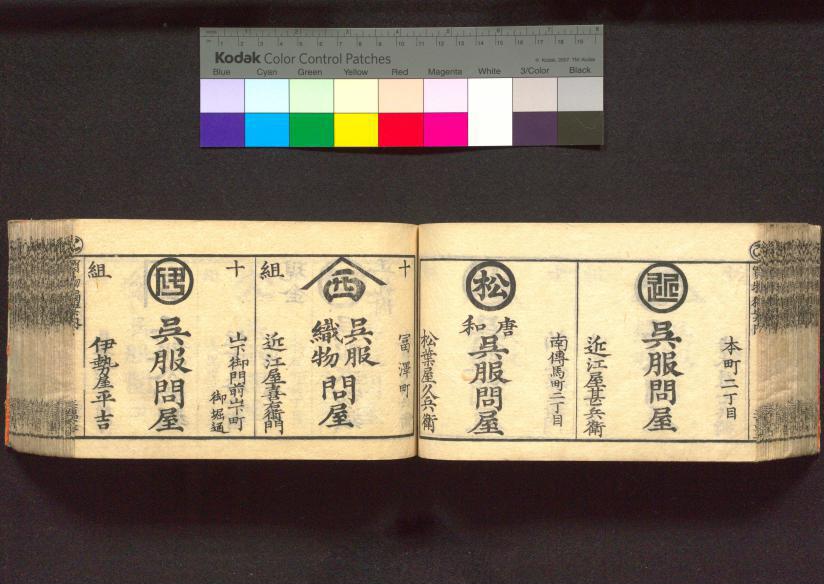 Kodak Color Control Patches
© Kodak, 2007 TM: Kodak
Blue Cyan Green Yellow Red Magenta White 3/Color Black
本町二丁目
近
呉服問屋
近江屋甚兵衛
南傳馬町二丁目
松
唐和
呉服問屋
松葉屋久兵衛
十
冨澤町
西
呉服
織物
問屋
組
近江屋喜右衛門
十
山下御門前山下町
御堀通
呉服問屋
組
伊勢屋平吉